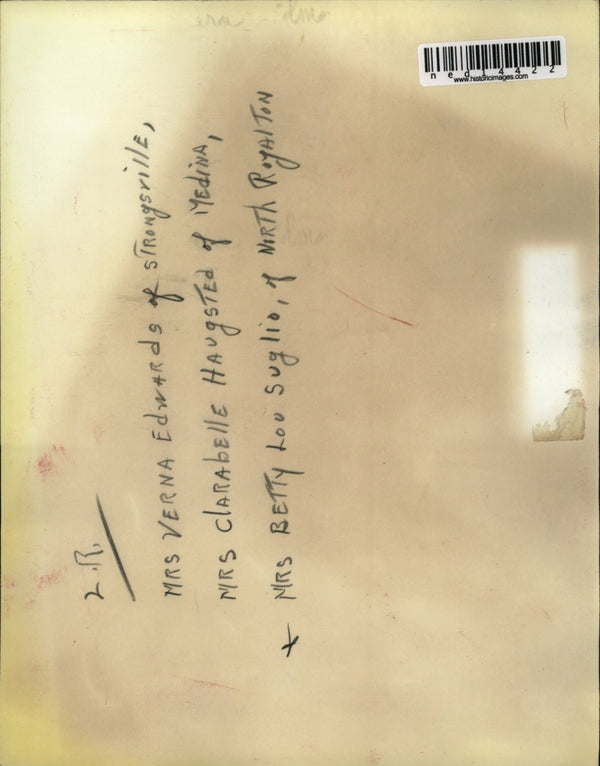 L.R.
MRS VERNA EdWARds of STRONgsville,
MRS ClARAbElle HAUgSTEd of MEdiNA,
+ MRS BETTy Lou Suglio, of NORTh RoyAlTON
ned14422
www.historicimages.com